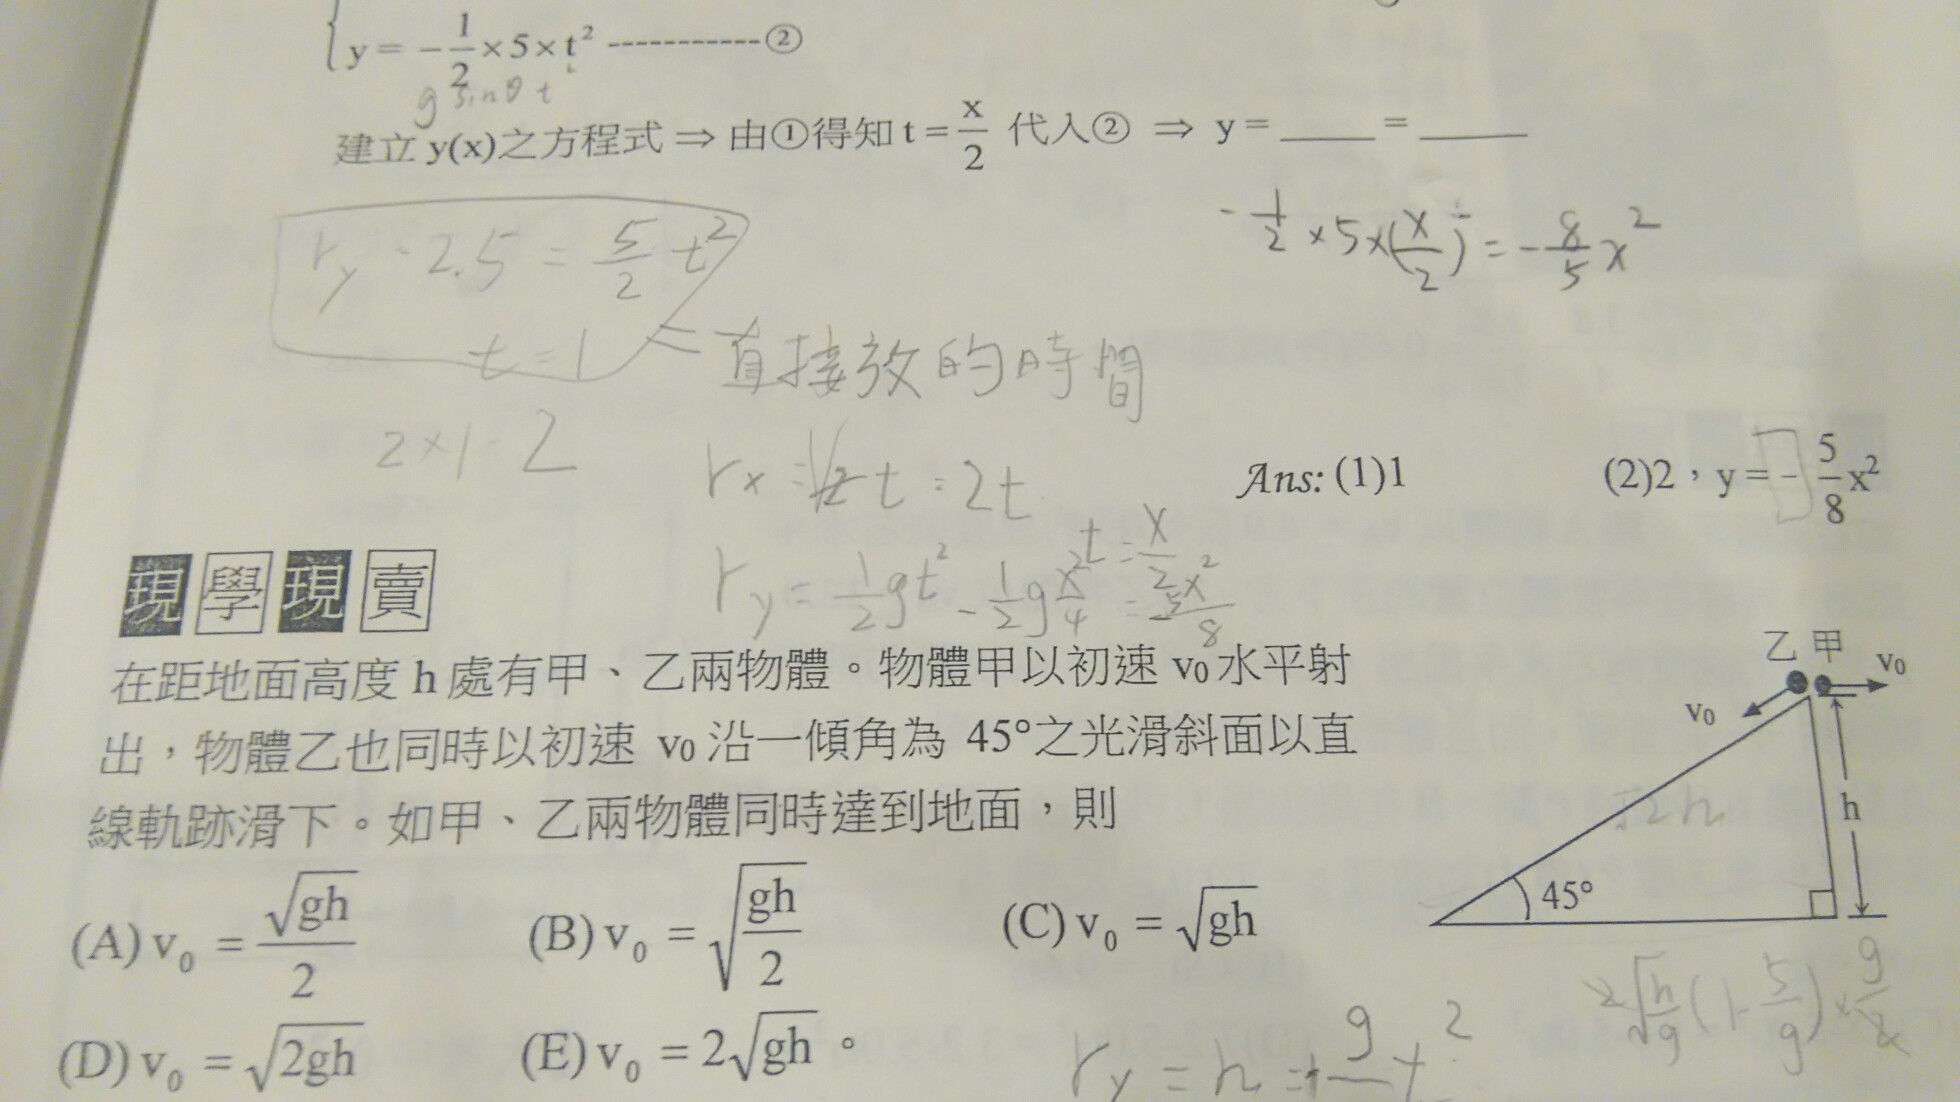 y = -1/2 × 5 × t² -----------②
g sinθ t
建立 y(x)之方程式 ⇒ 由①得知 t = x/2 代入② ⇒ y = ____ = ____
-1/2 × 5 × (x/2)² = -8/5 x²
ry - 2.5 = 5/2 t²
t = 1
直接放的時間
2×1=2
rx = t = 2t
t = x/2
Ans: (1)1 (2)2，y = -5/8 x²
ry = 1/2 gt²
現學現賣
在距地面高度 h 處有甲、乙兩物體。物體甲以初速 v₀ 水平射
出，物體乙也同時以初速 v₀ 沿一傾角為 45°之光滑斜面以直
線軌跡滑下。如甲、乙兩物體同時達到地面，則
(A) v₀ = √gh/2 (B) v₀ = √(gh/2) (C) v₀ = √gh
(D) v₀ = √2gh (E) v₀ = 2√gh 。
乙 甲
v₀
v₀
h
√2h
45°